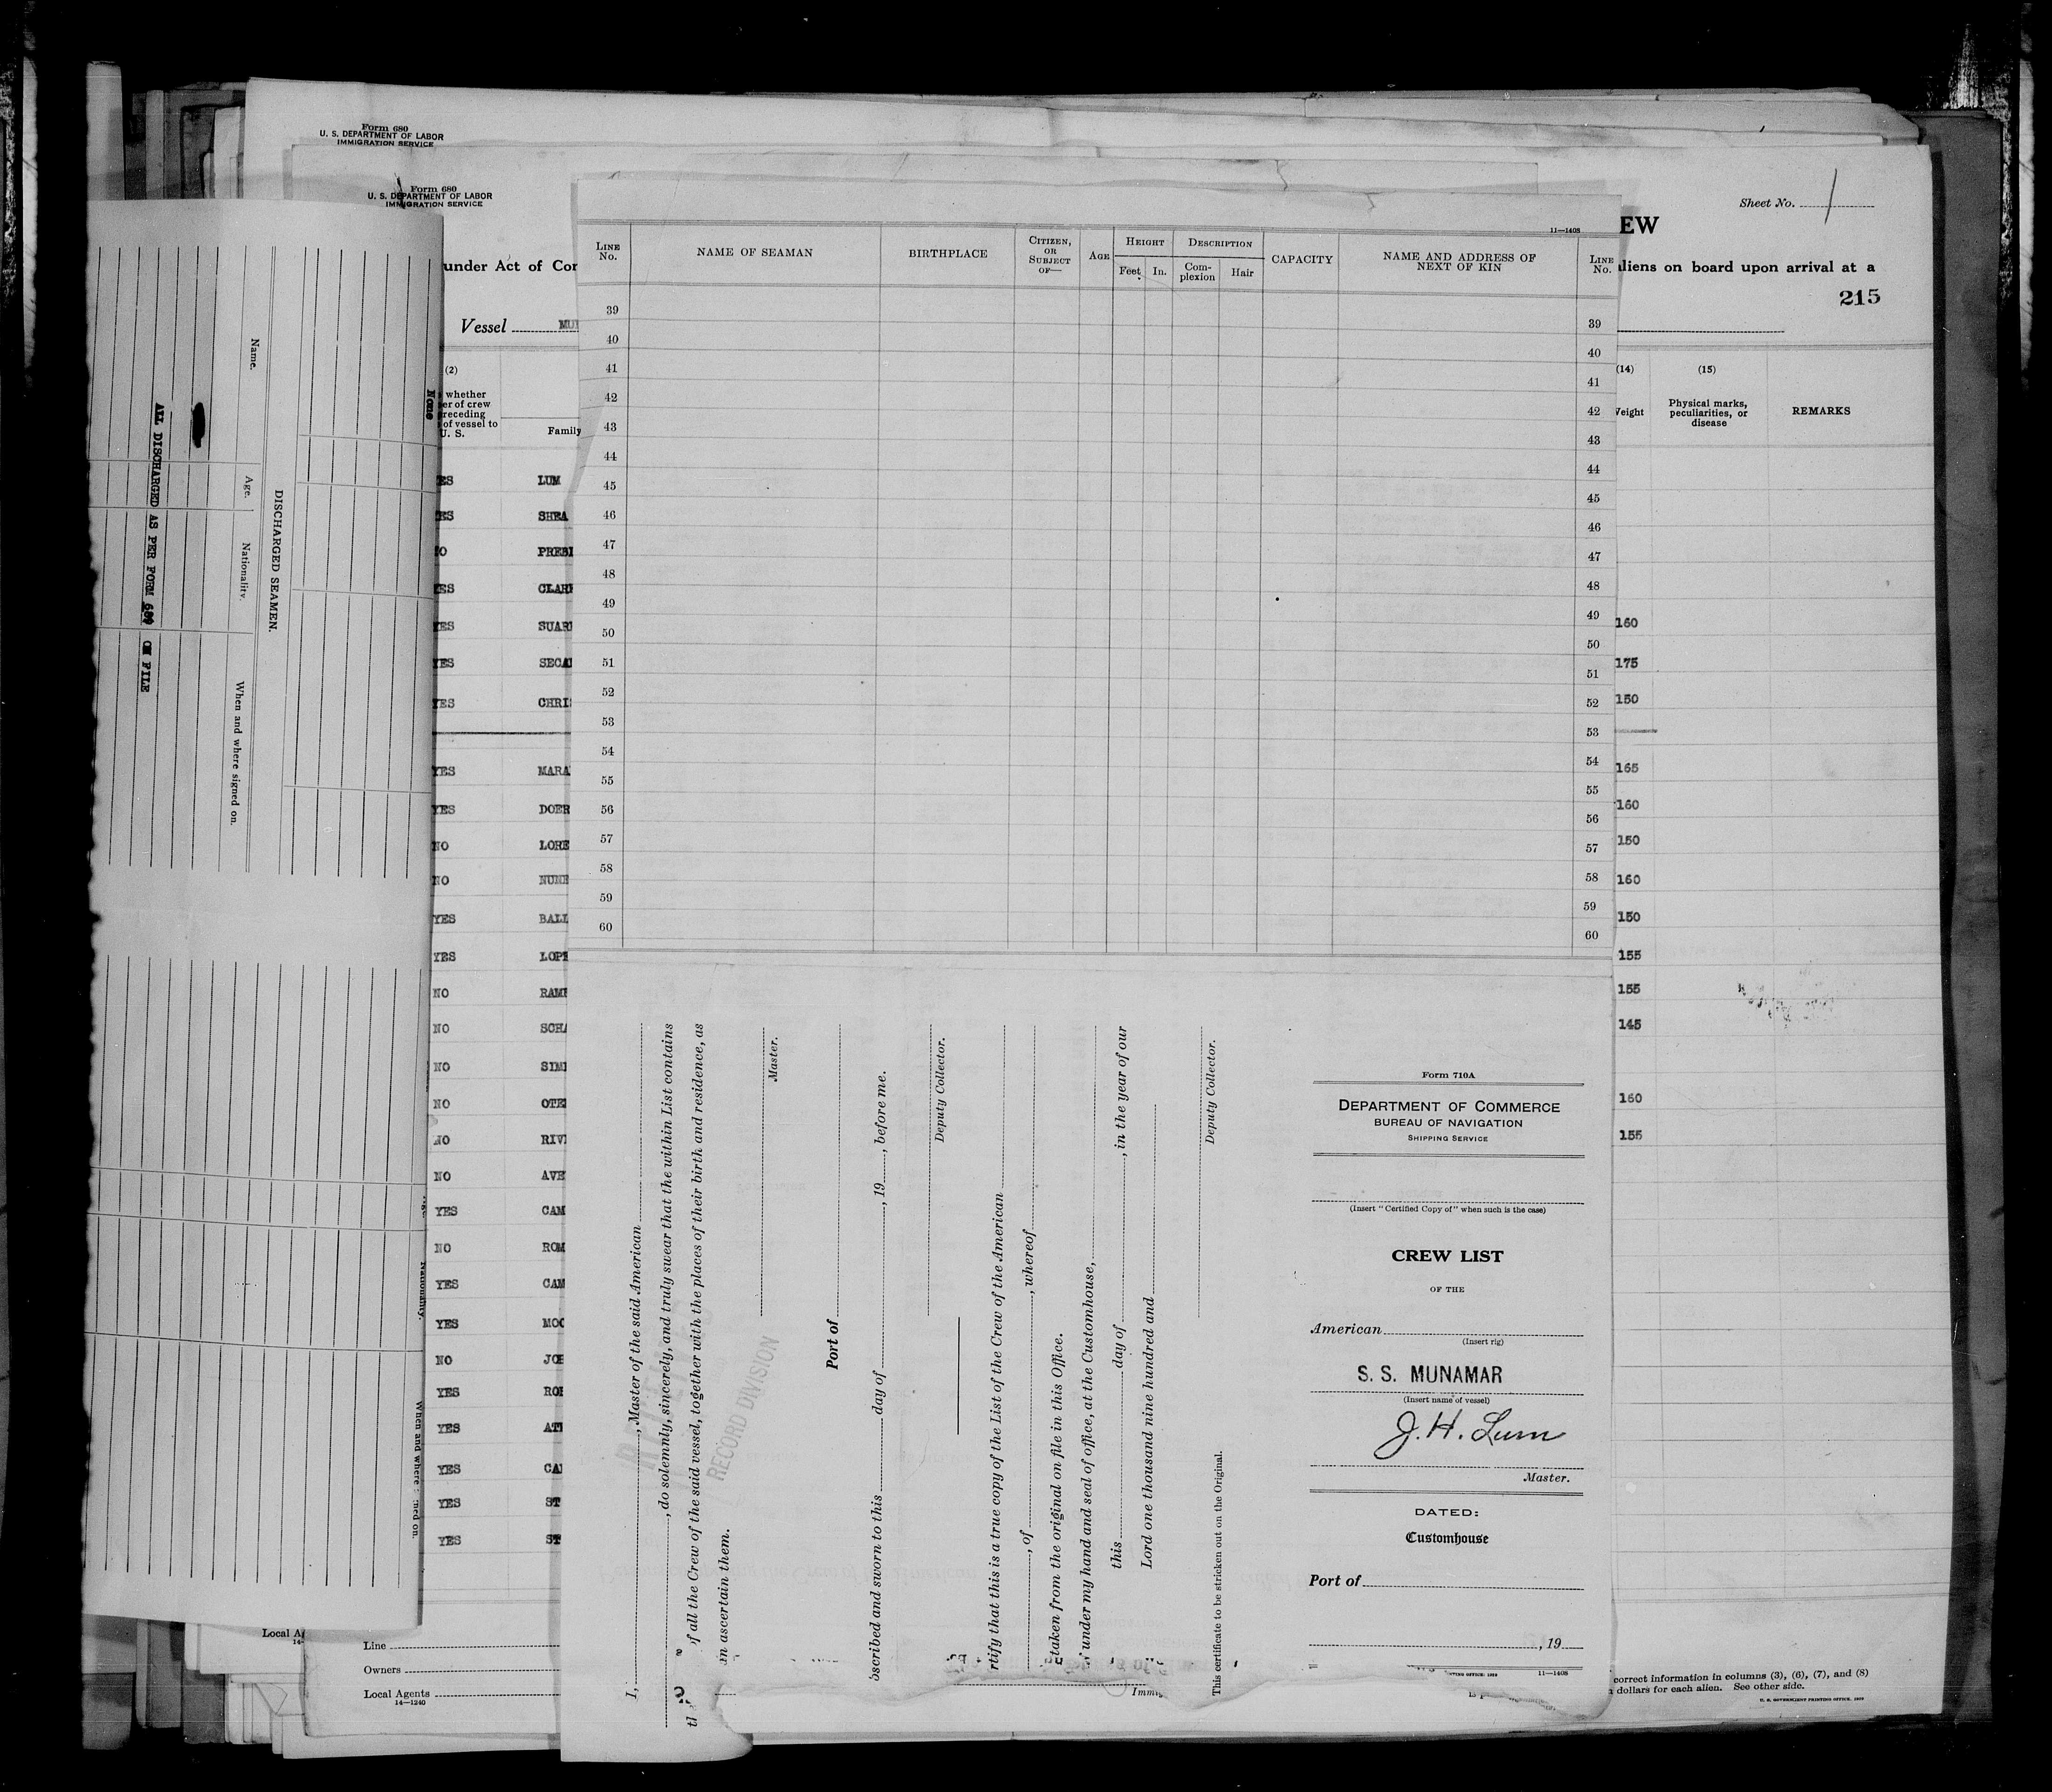 Form 680
U. S. DEPARTMENT OF LABOR
IMMIGRATION SERVICE
Form 680
U. S. DEPARTMENT OF LABOR
IMMIGRATION SERVICE
Sheet No. 1
EW
under Act of Con
aliens on board upon arrival at a
215
Vessel MU
(2)
whether
er of crew
receding
of vessel to
U. S.
Family
(14)
Weight
(15)
Physical marks,
peculiarities, or
disease
REMARKS
ES LUM
ES SHEA
O PRESI
ES CLARK
YES SUAR
YES SECA
YES CHRI
YES MARA
YES DOER
NO LORE
NO NUNE
YES BALL
YES LOPE
NO RAMI
NO SCHA
NO SIM
NO OTE
NO RIVI
NO AVE
YES CAM
NO ROM
YES CAM
YES MOO
NO JOH
YES ROB
YES AT
YES CA
YES ST
YES ST
160
175
150
165
160
150
160
150
155
155
145
160
155
None
DISCHARGED SEAMEN.
Name.
Age.
Nationality.
When and where signed on.
ALL DISCHARGED AS PER FORM 680 ON FILE
Nationality.
When and where
ned on.
11—1408
LINE No.
NAME OF SEAMAN
BIRTHPLACE
CITIZEN, OR SUBJECT OF—
AGE
HEIGHT
Feet
In.
DESCRIPTION
Complexion
Hair
CAPACITY
NAME AND ADDRESS OF NEXT OF KIN
LINE No.
39 39
40 40
41 41
42 42
43 43
44 44
45 45
46 46
47 47
48 48
49 49
50 50
51 51
52 52
53 53
54 54
55 55
56 56
57 57
58 58
59 59
60 60
I, , Master of the said American
, do solemnly, sincerely, and truly swear that the within List contains
of all the Crew of the said vessel, together with the places of their birth and residence, as
n ascertain them.
Master.
RECORD DIVISION
Port of
bscribed and sworn to this day of , 19 , before me.
Deputy Collector.
rtify that this is a true copy of the List of the Crew of the American
, of , whereof
taken from the original on file in this Office.
under my hand and seal of office, at the Customhouse,
this day of , in the year of our
Lord one thousand nine hundred and
Deputy Collector.
This certificate to be stricken out on the Original.
Form 710A
DEPARTMENT OF COMMERCE
BUREAU OF NAVIGATION
SHIPPING SERVICE
(Insert "Certified Copy of" when such is the case)
CREW LIST
OF THE
American
(Insert rig)
S. S. MUNAMAR
(Insert name of vessel)
J. H. Lum
Master.
DATED:
Customhouse
Port of
, 19
11—1408
Local A
Line
Owners
Local Agents
14—1240
Immig
correct information in columns (3), (6), (7), and (8)
dollars for each alien. See other side.
U. S. GOVERNMENT PRINTING OFFICE: 1929